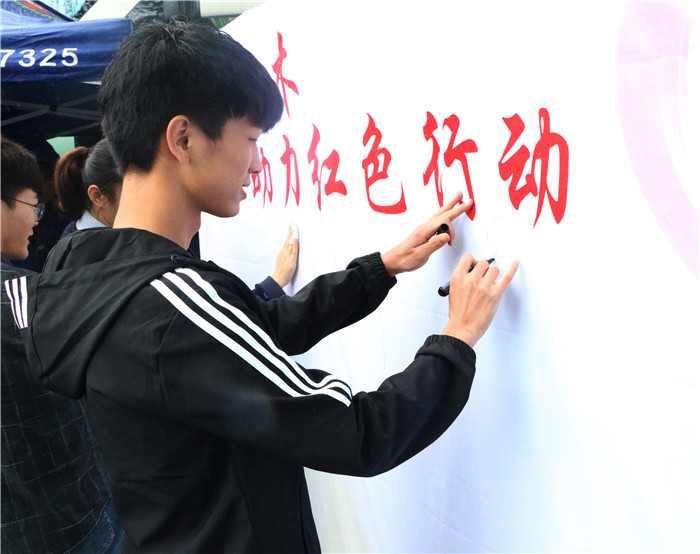 7325
木
助力红色行动